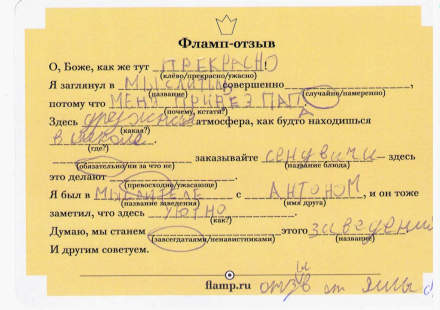 Фламп-отзыв
О, Боже, как же тут ПРЕКРАСНО!
(клёво/прекрасно/ужасно)
Я заглянул в совершенно,
(название) (случайно/намеренно)
потому что МЕНЯ ПРИВЁЗ ПАПА.
(почему, кстати?)
Здесь атмосфера, как будто находишься
(какая?)
в
(где?)
заказывайте сендвичи здесь
(обязательно/ни за что не) (название блюда)
это делают
(превосходно/ужасающе)
Я был в МЫСЛИТЕЛЕ с АНТОНОМ, и он тоже
(название заведения) (имя друга)
заметил, что здесь УЮТНО.
(как?)
Думаю, мы станем этого заведения
(завсегдатаями/ненавистниками) (название)
И другим советуем.
flamp.ru отзыв от